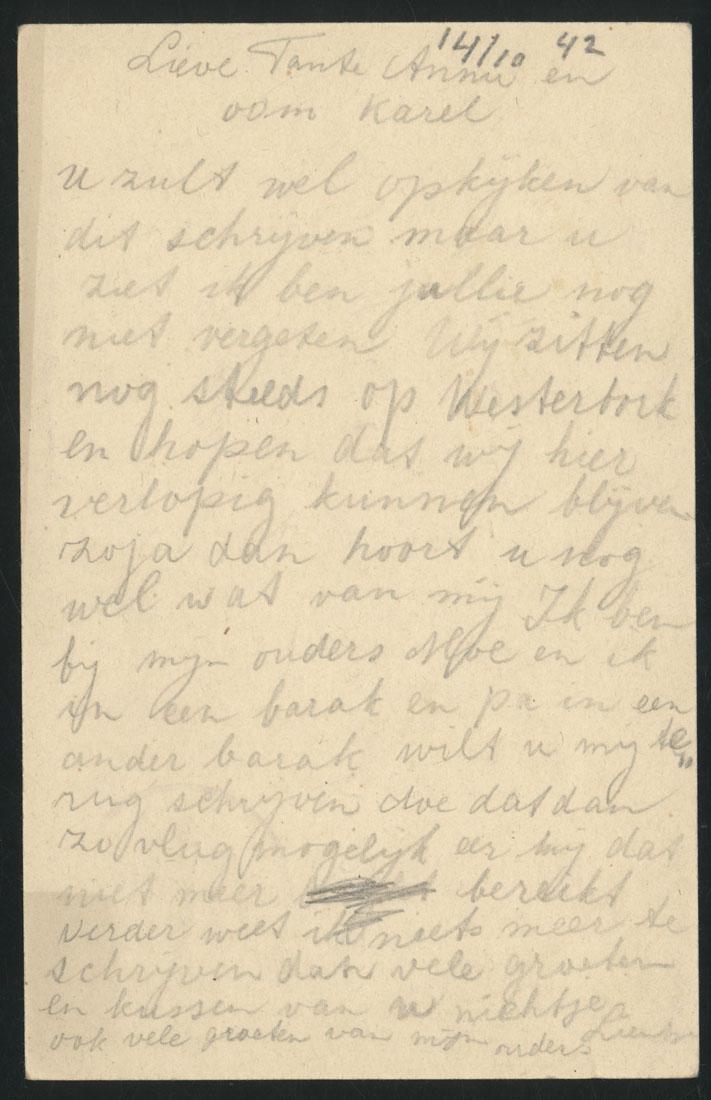 14/10 42
Lieve Tante Annie en
oom Karel
u zult wel opkijken van
dit schrijven maar u
ziet ik ben jullie nog
niet vergeten Wij zitten
nog steeds op Westerbork
en hopen dat wij hier
verlopig kunnen blijven
zoja dan hoort u nog
wel wat van mij Ik ben
bij mijn ouders Moe en ik
in een barak en pa in een
ander barak wilt u mij te„
rug schrijven doe dat dan
zo vlug mogelijk eer mij dat
niet meer bereikt
verder weet ik niets meer te
schrijven dan vele groeten
en kussen van u nichtje
ook vele groeten van mijn ouders